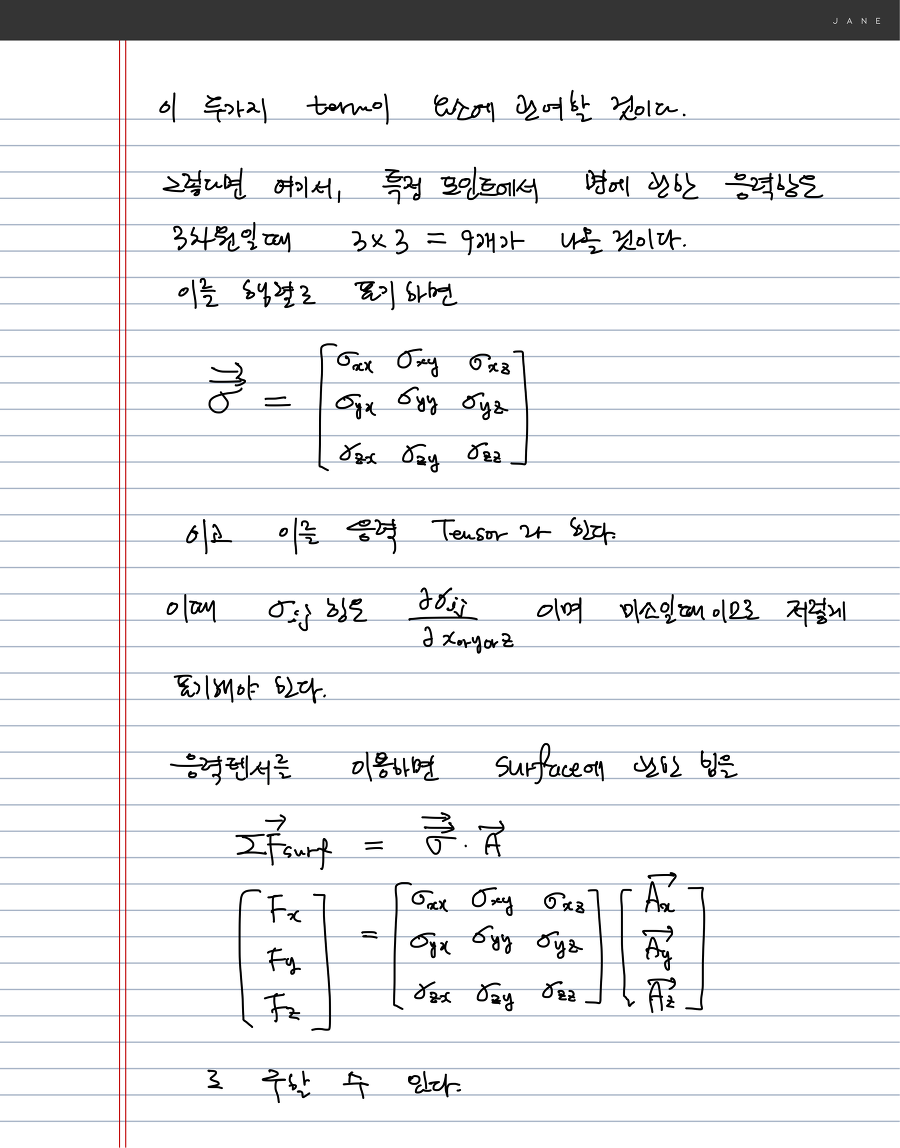 JANE
이 두가지 term이 요소에 관여할 것이다.
그렇다면 여기서, 특정 포인트에서 면에 관한 응력항은
3차원일때 3×3 = 9개가 나올 것이다.
이를 행렬로 표기하면
σ⃗⃗ = [σxx σxy σxz
σyx σyy σyz
σzx σzy σzz]
이고 이를 응력 Tensor 라 한다.
이때 σij 항은 ∂σij / ∂x or y or z 이며 미소일때 이므로 저렇게
표기해야 한다.
응력텐서를 이용하면 surface에 관한 힘을
ΣF⃗surf = σ⃗⃗ · A⃗
[Fx = [σxx σxy σxz] [A⃗x
Fy σyx σyy σyz A⃗y
Fz] σzx σzy σzz] A⃗z]
로 구할 수 있다.